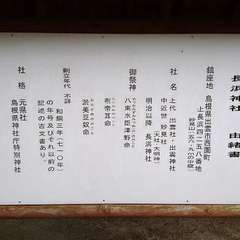 長浜神社 由緒書
鎮座地 島根県出雲市西園町
上長浜四二五八番地
妙見山(一五八・九九の中腹)
社名 上代 出雲社・出雲神社
中近世 妙見社
(天社・大明神)
明治以降 長浜神社
御祭神
八束水臣津野命
布帝耳命
淤美豆奴命
創立年代 不詳
和銅三年(七一〇年)
の年号及びそれ以前の
記述の古文書あり。
社格 元県社
島根県神社庁特別神社